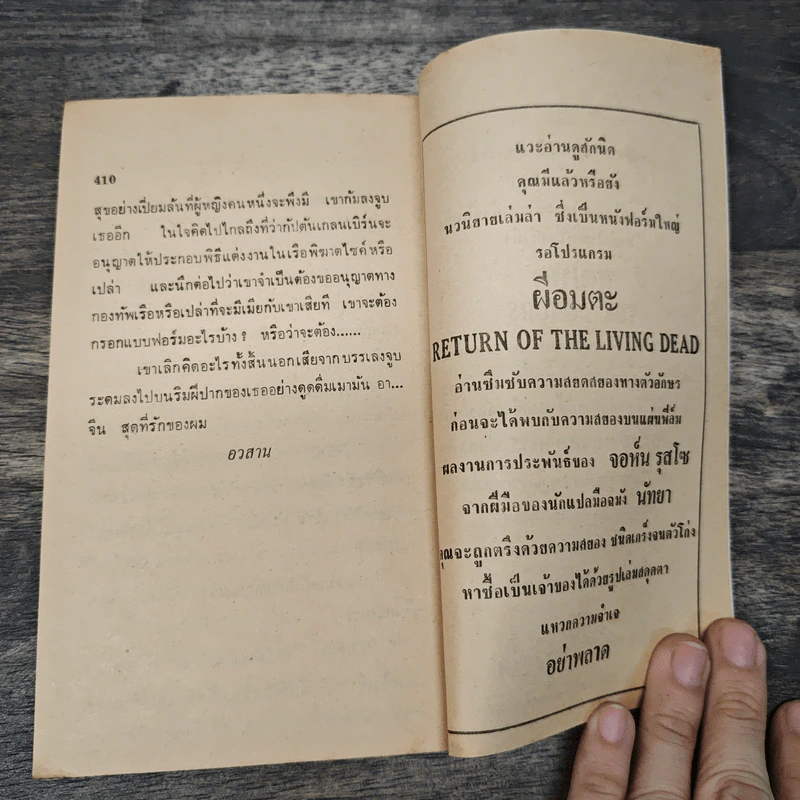 410
สุขอย่างเปี่ยมล้นที่ผู้หญิงคนหนึ่งจะพึงมี เขาก้มลงจูบ
เธออีก ในใจคิดไปไกลถึงที่ว่ากัปตันเกลนเบิร์นจะ
อนุญาตให้ประกอบพิธีแต่งงานในเรือพิฆาตไซค์หรือ
เปล่า และนึกต่อไปว่าเขาจำเป็นต้องขออนุญาตทาง
กองทัพเรือหรือเปล่าที่จะมีเมียกับเขาเสียที เขาจะต้อง
กรอกแบบฟอร์มอะไรบ้าง? หรือว่าจะต้อง......
เขาเลิกคิดอะไรทั้งสิ้นนอกเสียจากบรรเลงจูบ
ระดมลงไปบนริมฝีปากของเธออย่างดูดดื่มเมามัน อา...
จีน สุดที่รักของผม
อวสาน
แวะอ่านดูสักนิด
คุณมีแล้วหรือยัง
นวนิยายเล่มล่า ซึ่งเป็นหนังฟอร์มใหญ่
รอโปรแกรม
ผีอมตะ
RETURN OF THE LIVING DEAD
อ่านซึมซับความสยดสยองทางตัวอักษร
ก่อนจะได้พบกับความสยองบนแผ่นฟิล์ม
ผลงานการประพันธ์ของ จอห์น รุสโซ
จากฝีมือของนักแปลมือฉมัง นัทยา
คุณจะถูกตรึงด้วยความสยอง ชนิดเกร็งจนตัวโก่ง
หาซื้อเป็นเจ้าของได้ด้วยรูปเล่มสดุดตา
แหวกความจำเจ
อย่าพลาด